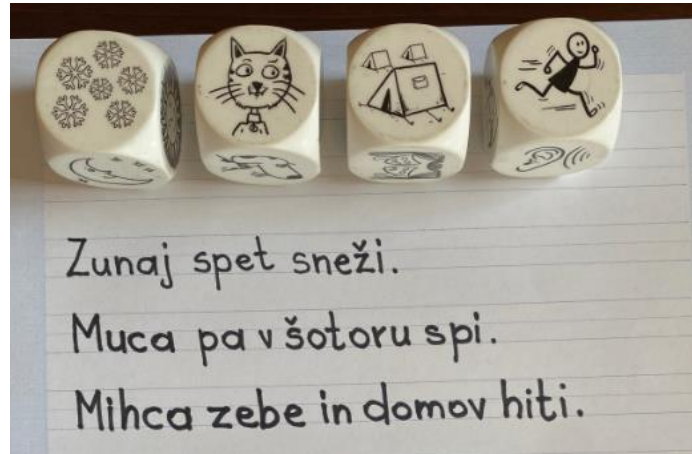 Zunaj spet sneži.
Muca pa v šotoru spi.
Mihca zebe in domov hiti.